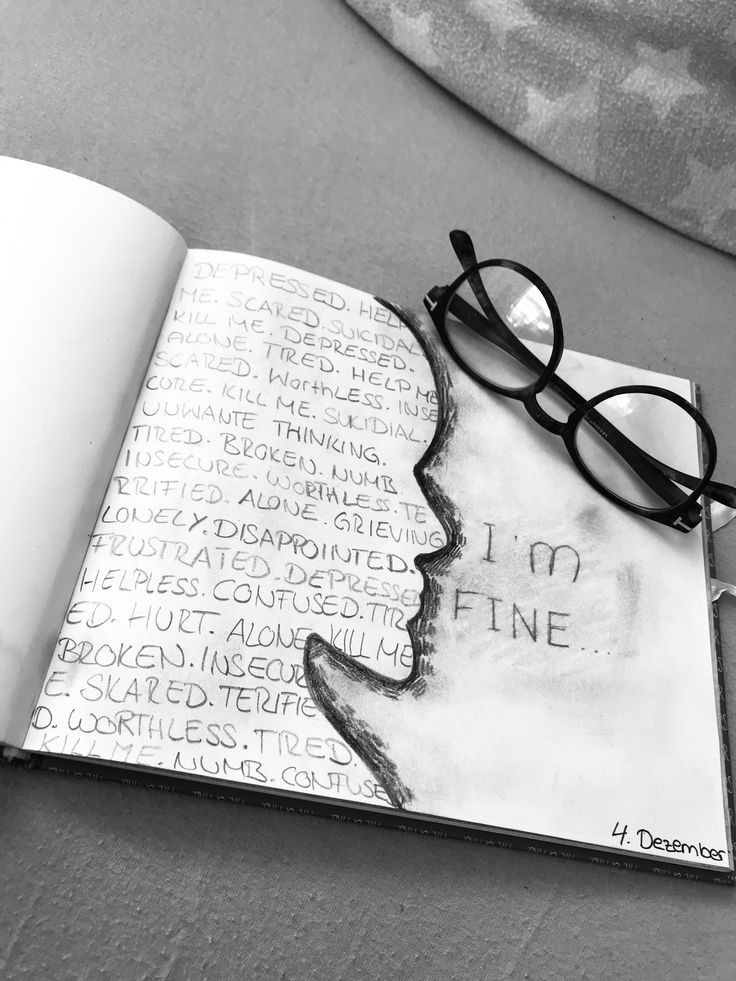 DEPRESSED. HELP
ME. SCARED. SUICIDAL.
KILL ME. DEPRESSED.
ALONE. TIRED. HELP ME
SCARED. WORTHLESS. INSE
CURE. KILL ME. SUICIDIAL.
UNWANTE THINKING.
TIRED. BROKEN. NUMB
INSECURE. WORTHLESS. TE
RRIFIED. ALONE. GRIEVING
LONELY. DISAPPOINTED.
FRUSTRATED. DEPRESSE
HELPLESS. CONFUSED. TIR
ED. HURT. ALONE. KILL ME
BROKEN. INSECUR
E. SKARED. TERIFIE
D. WORTHLESS. TIRED.
KILL ME. NUMB. CONFUSE
I'm
FINE...
4. Dezember